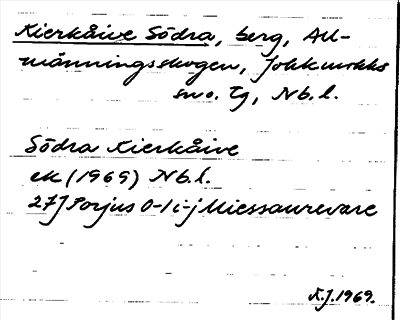 Kierkåive Södra, berg, All-
männingsskogen, Jokkmokks
sn o. tg, Nb. l.
Södra Kierkåive
ek (1969) Nb. l.
27J Porjus 0-1 i-j Miessaurevare
K.J. 1969.